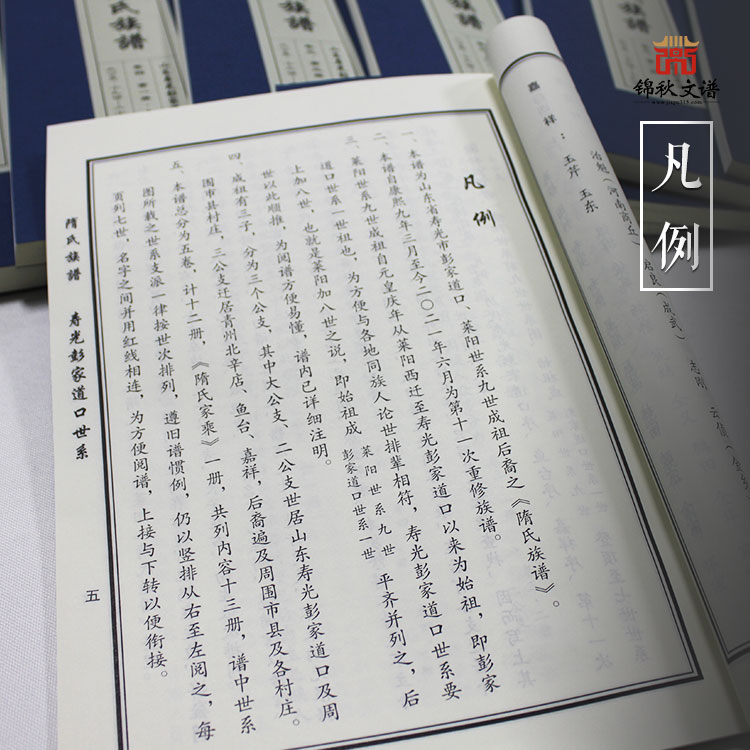 锦秋文谱
凡例
嘉祥：玉芹 玉东
凡例
一、本谱为山东省寿光市彭家道口、莱阳世系九世成祖后裔之《隋氏族谱》。
二、本谱自康熙九年三月至今二〇二一年六月为第十一次重修族谱。
三、莱阳世系九世成祖自元皇庆年从莱阳西迁至寿光彭家道口以来为始祖，即彭家
道口世系一世祖也，为方便与各地同族人论世排辈相符，寿光彭家道口世系要
上加八世，也就是莱阳加八世之说，即始祖成 莱阳世系九世 彭家道口世系一世 平齐并列之，后
世以此顺推，为阅谱方便易懂，谱内已详细注明。
四、成祖有三子，分为三个公支，其中大公支、二公支世居山东寿光彭家道口及周
围市县村庄，三公支迁居青州北辛店、鱼台、嘉祥，后裔遍及周围市县及各村庄。
五、本谱总分为五卷，计十二册，《隋氏家乘》一册，共列内容十三册，谱中世系
图所载之世系支派一律按世次排列，遵旧谱惯例，仍以竖排从右至左阅之，每
页到七世，名字之间并用红线相连，为方便阅谱，上接与下转以便衔接。
隋氏族谱 寿光彭家道口世系
五
氏族谱
族谱